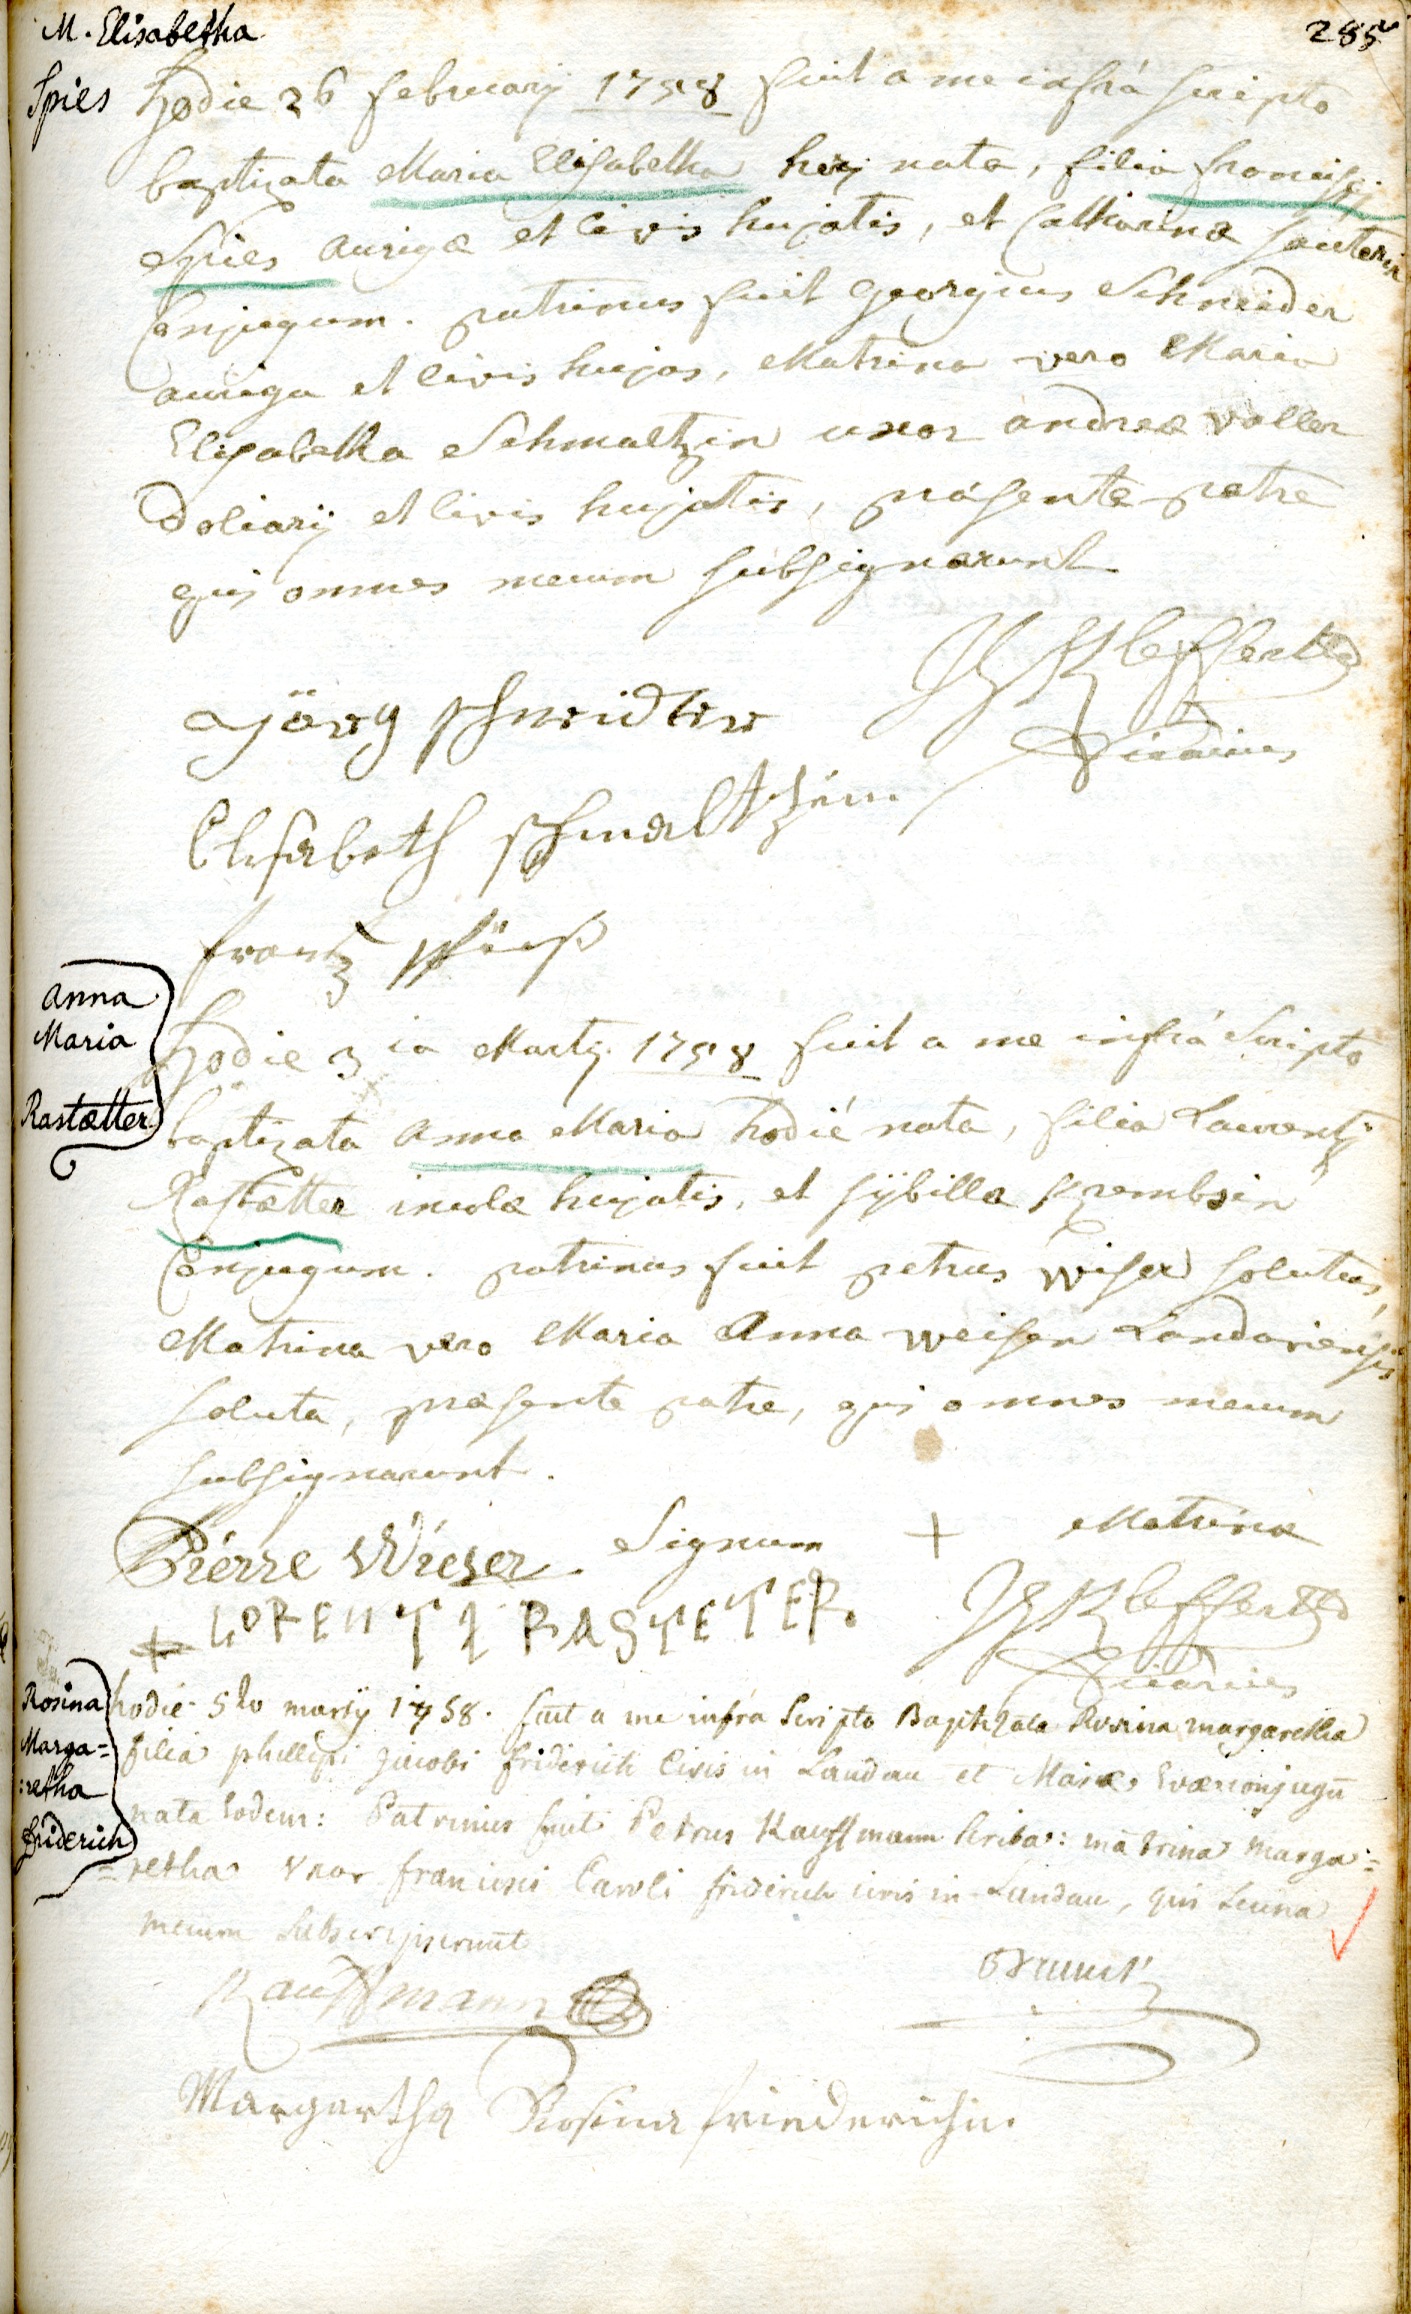 M. Elisabetha
Spies
285
Hodie 26 februarij 1758 fuit a me infrà scripto
baptizata Maria Elisabetha herj nata, filia francisci
Spies aurigæ et civis hujatis, et Catharinæ sauterin
Conjugum. patrinus fuit Georgius Schneider
auriga et civis hujas, Matrina vero Maria
Elisabetha Schmaltzin uxor andreæ voller
Doliarij et civis hujatis, præsente patre
qui omnes mecum subsignarunt
Vicarius
Jörg schneidter
Elisabeth schmaltzin
frantz
Anna
Maria
Rastætter
Hodie 3ia Martij 1758 fuit a me infrà Scripto
baptizata Anna Maria hodié nata, filia Laurentij
Rastætter incolæ hujatis, et sÿbillæ krembsin
Conjugum. patrinus fuit petrus wiser solutus,
Matrina vero Maria Anna weisen Landaviensis
soluta, præsente patre, qui omnes mecum
subsignarunt.
Piérre Wieser Signum + Matrinæ
+ LORENTZ RASTETER.
Vicarius
Rosina
Marga=
:retha
friderich
hodié 5to martij 1758. fuit a me infra Scripto Baptizata Rosina margaretha
filia phillipi jacobi friderich Civis in Landau et Mariæ Evæ conjugū
nata eodem: Patrinus fuit Petrus Kauffmann scriba: matrina marga=
=retha Vxor francisci Caroli friderich civis in Landau, qui
mecum subscripserunt
Kauffmann
Margartha Rosina friederichin.